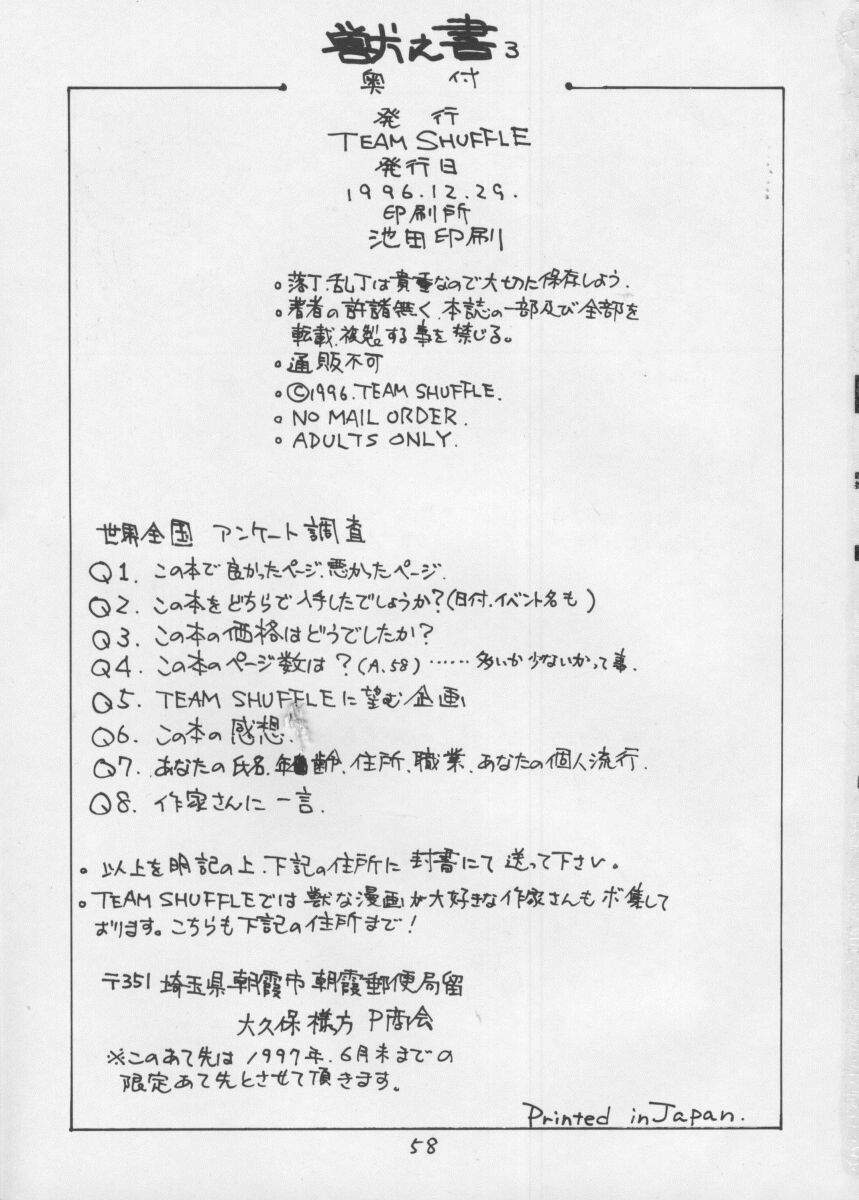 獣之書3
奥付
発行
TEAM SHUFFLE
発行日
1996.12.29.
印刷所
池田印刷
。落丁.乱丁は貴重なので大切に保存しよう.
。著者の許諾無く、本誌の一部及び全部を
転載、複製する事を禁じる。
。通販不可
。©1996.TEAM SHUFFLE.
。NO MAIL ORDER.
。ADULTS ONLY.
世界全国 アンケート調査
Q1. この本で良かったページ.悪かったページ.
Q2. この本をどちらで入手したでしょうか?(日付.イベント名も)
Q3. この本の価格はどうでしたか?
Q4. この本のページ数は?(A.58)……多いか少ないかって事.
Q5. TEAM SHUFFLEに望む企画
Q6. この本の感想.
Q7. あなたの氏名.年齢、住所、職業、あなたの個人流行.
Q8. 作家さんに一言.
。以上を明記の上、下記の住所に封書にて送って下さい。
。TEAM SHUFFLEでは獣な漫画が大好きな作家さんもボ集して
おります。こちらも下記の住所まで!
〒351 埼玉県朝霞市朝霞郵便局留
大久保様方 P商会
※このあて先は1997年.6月末までの
限定あて先とさせて頂きます。
Printed in Japan.
58